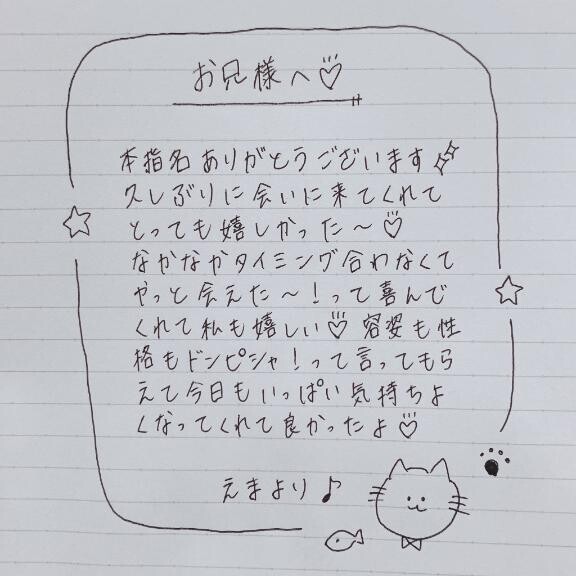 お兄様へ♡
本指名ありがとうございます✨
久しぶりに会いに来てくれて
とっても嬉しかった〜♡
なかなかタイミング合わなくて
やっと会えた〜！って喜んで
くれて私も嬉しい♡ 容姿も性
格もドンピシャ！って言ってもら
えて今日もいっぱい気持ちよ
くなってくれて良かったよ♡
えまより♪